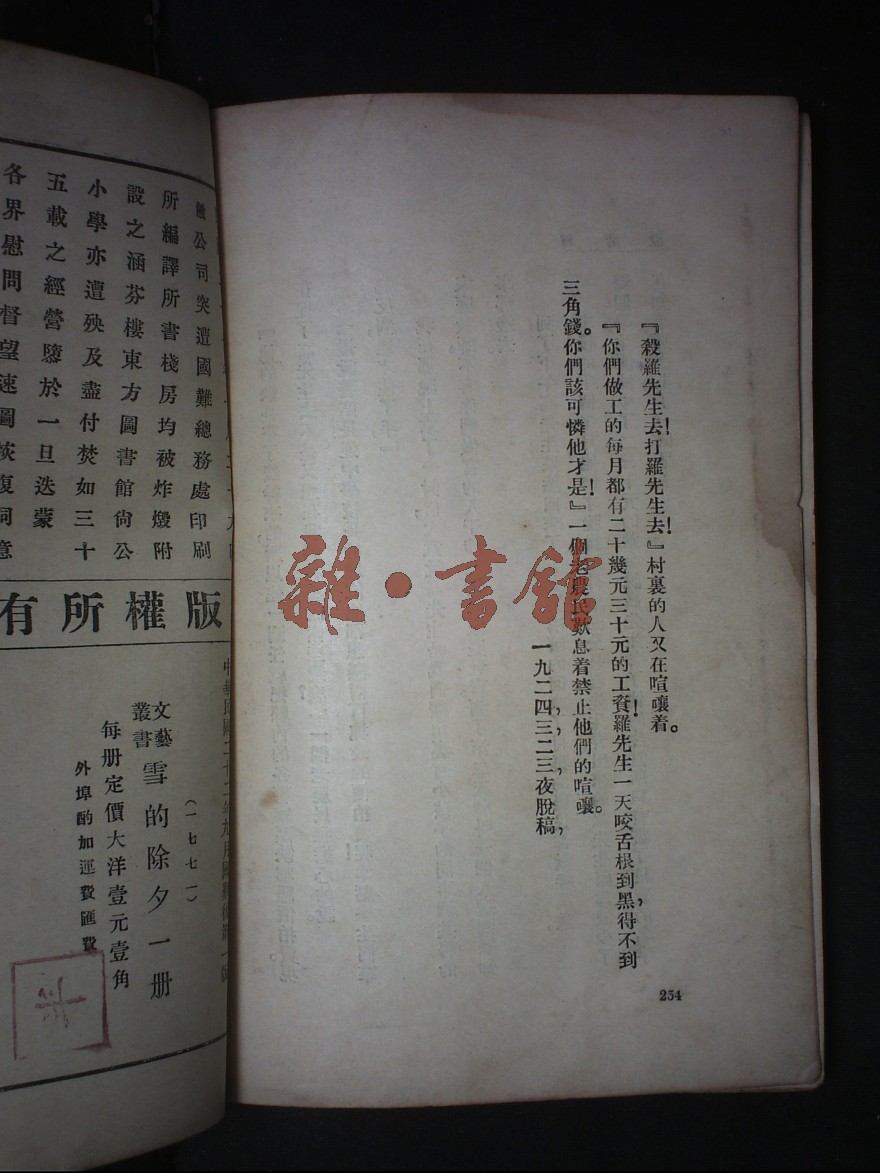 『殺羅先生去!打羅先生去!』村裏的人又在喧嚷着。
『你們做工的每月都有二十幾元三十元的工資!羅先生一天咬舌根到黑,得不到
三角錢。你們該可憐他才是!』一個老農民歎息着禁止他們的喧嚷。
一九二四,三,二三,夜脫稿,
254
雜·書館
公司突遭國難總務處印刷
所編譯所書棧房均被炸燬附
設之涵芬樓東方圖書館尙公
小學亦遭殃及盡付焚如三十
五載之經營隳於一旦迭蒙
各界慰問督望速圖恢復詞意
版權所有
中華民國二十二年九月國難後第一版
(一七七一)
文藝叢書 雪的除夕一册
每册定價大洋壹元壹角
外埠酌加運費匯費